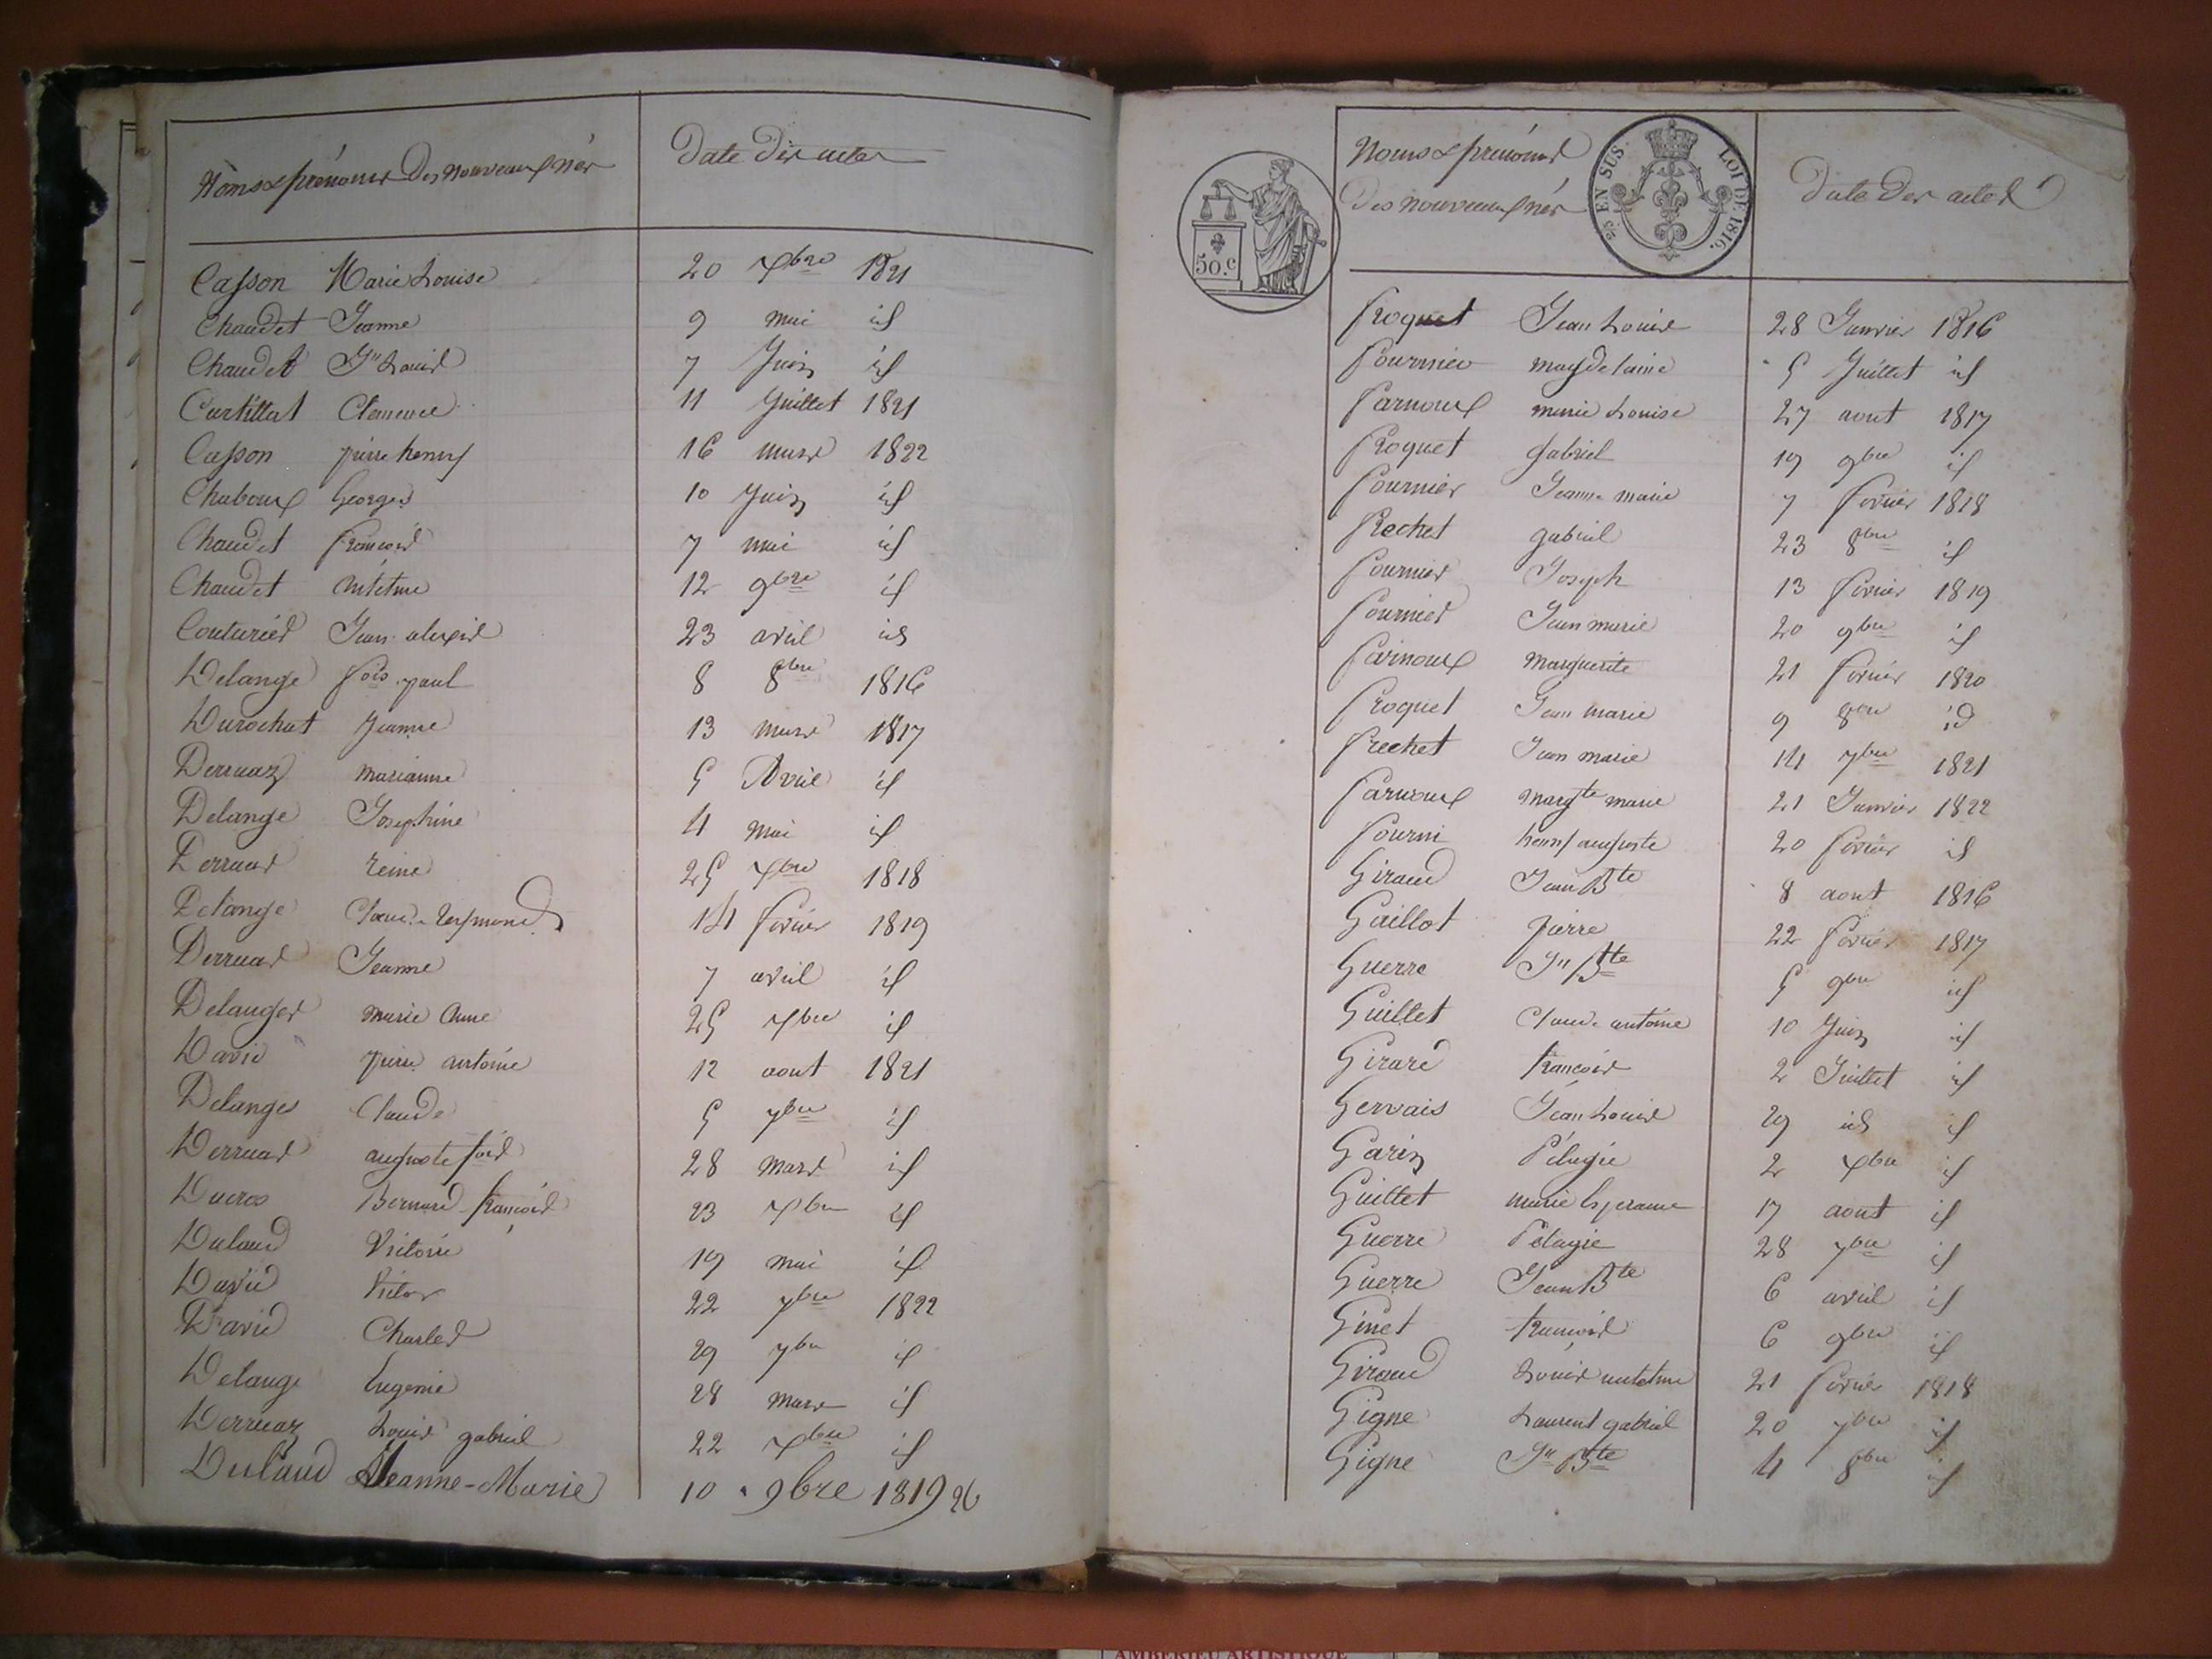 Noms & prénoms des nouveaux nés
Date des actes
Casson Marie Louise 20 Xbre 1821
Chaudet Jeanne 9 mai id
Chaudet Jn Louis 7 Juin id
Curtillat Clemence 11 Juillet 1821
Casson pierre henry 16 mars 1822
Chaboux Georges 10 Juin id
Chaudet François 7 mai id
Chaudet Antelme 12 9bre id
Couturier Jean alexis 23 avril id
Delange fois paul 8 8bre 1816
Durochat Jeanne 13 mars 1817
Derruaz marianne 5 Avril id
Delange Josephine 4 mai id
Derruaz reine 25 Xbre 1818
Delange Claude Raymond 14 fevrier 1819
Derruaz Jeanne 7 avril id
Delanges marie Anne 25 Xbre id
David pierre antoine 12 aout 1821
Delanges Claude 5 7bre id
Derruaz auguste fois 28 mars id
Ducros Bernard françois 23 Xbre id
Dulaud Victoire 19 mai id
David Victor 22 7bre 1822
David Charles 29 7bre id
Delange Eugenie 28 mars id
Derruaz Louis gabriel 22 Xbre id
Dulaud Jeanne-Marie 10 9bre 1819 26
50.c
Noms & prénoms
des nouveaux nés
EN SUS. LOI DE 1816.
Date des actes
froquet Jean Louis 28 Janvier 1816
fournier magdelaine 5 Juillet id
farnoux marie Louise 27 aout 1817
froquet gabriel 19 9bre id
fournier Jeanne marie 7 fevrier 1818
frechet gabriel 23 8bre id
fournier Joseph 13 fevrier 1819
fournier Jean marie 20 9bre id
farnoux marguerite 21 fevrier 1820
froquet Jean marie 9 8bre id
frechet Jean marie 14 7bre 1821
farnoux margte marie 21 Janvier 1822
fourni henry auguste 20 fevrier id
Giraud Jean Bte 8 aout 1816
Guillot pierre 22 fevrier 1817
Guerre Jn Bte 5 9bre id
Guillet Claude antoine 10 Juin id
Girard françois 2 Juillet id
Gervais Jean Louis 29 id id
Garin Pélagie 2 Xbre id
Guillet marie Esperance 17 aout id
Guerre Pélagie 28 7bre id
Guerre Jean Bte 6 avril id
Ginet françois 6 9bre id
Giraud Louis antelme 21 fevrier 1818
Gigne Laurent gabriel 20 7bre id
Gigne Jn Bte 4 8bre id
AMBERIEU ARTISTIQUE